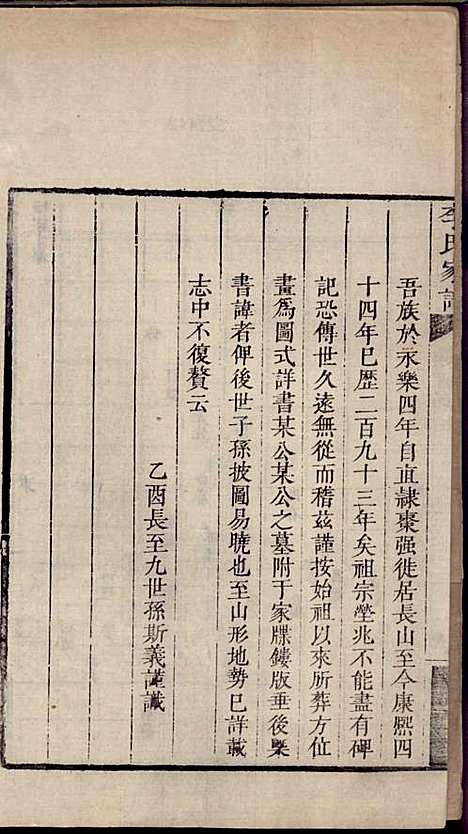 李氏家譜
吾族於永樂四年自直隸棗强徙居長山至今康熙四
十四年已歴二百九十三年矣祖宗塋兆不能盡有碑
記恐傳世久遠無從而稽茲謹按始祖以來所葬方位
畫爲圖式詳書某公某公之墓附于家牒鏤版垂後槩
書諱者俾後世子孫披圖易曉也至山形地勢已詳載
志中不復贅云
乙酉長至九世孫斯義謹識